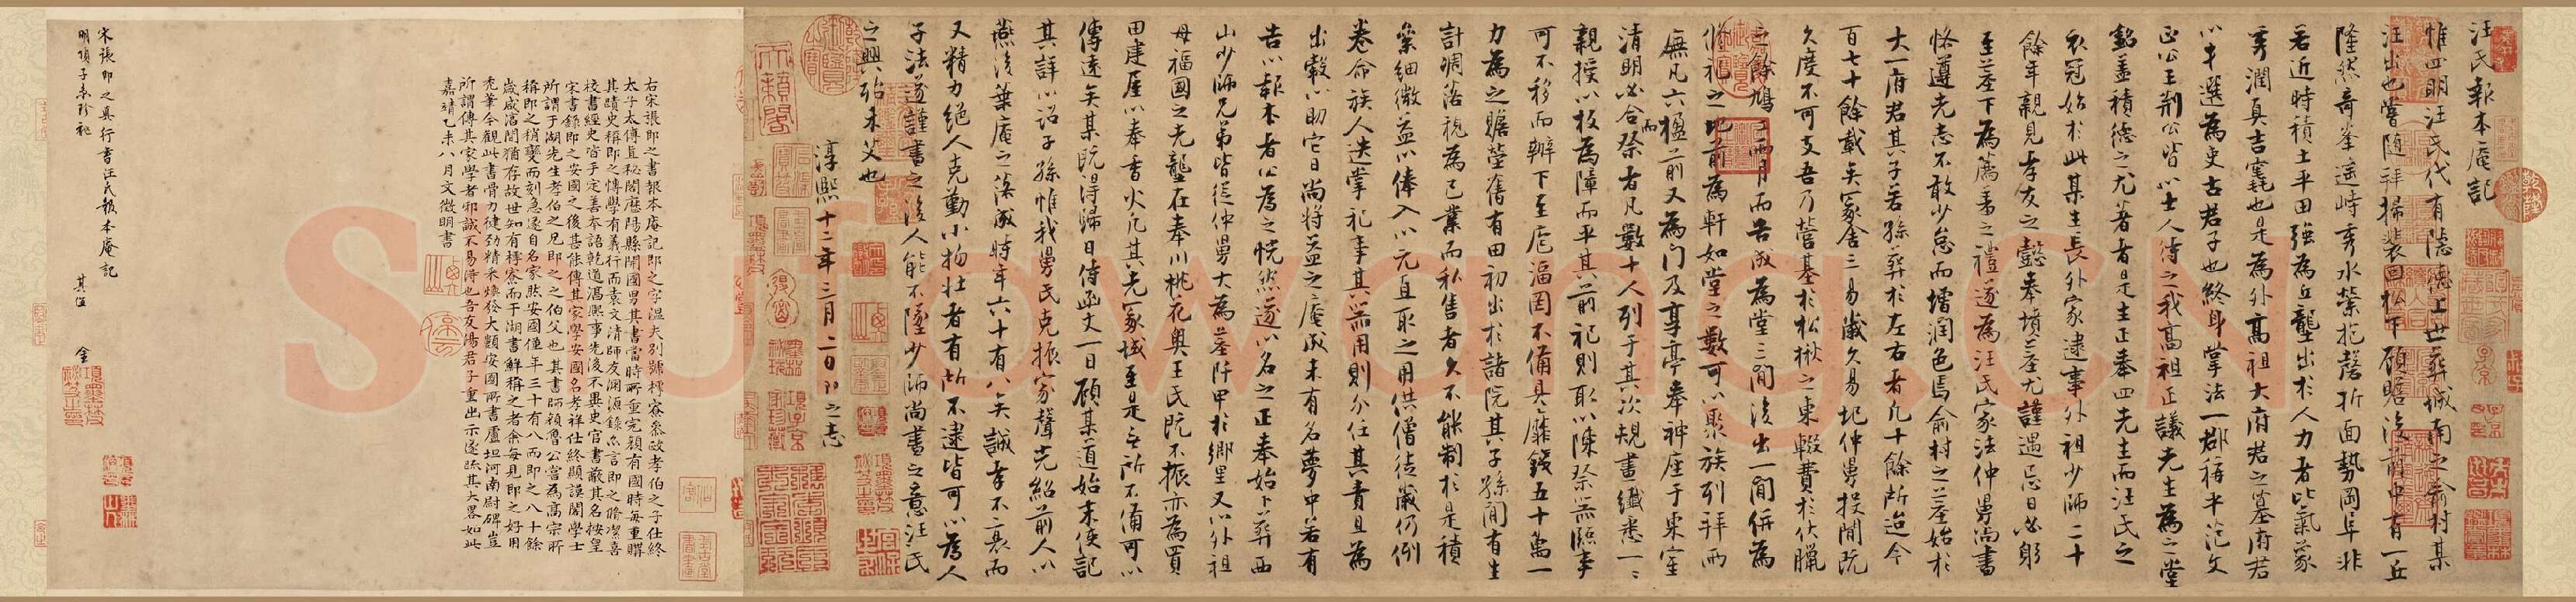 汪氏報本庵記
惟四明汪氏代有隱德上世葬城南之俞村某
汪出也嘗隨拜掃裴回松下顧瞻後前中有一丘
隆然奇峯遥峙秀水縈抱磬折面勢岡阜非
若近時積土平田強為丘壟出於人力者比氣象
秀潤真吉宅也是為外高祖大府君之墓府君
以才選為吏古君子也終身掌法一郡稱平范文
正公王荆公皆以士人待之我高祖正議先生為之堂
銘盖積德之尤著者是生正奉四先生而汪氏之
大一府君其子若孫葬於左右者凡十餘所迨今
百七十餘載矣冢舍三易歲久易圯仲舅投閒既
恪遵先志不敢少怠而墦潤色馬俞村之墓始於
至墓下為薦羞之禮遂為汪氏家法仲舅尚書
餘年親見孝友之懿奉墳墓尤謹遇忌日必躬
衣冠始於此某生長外家逮事外祖少師二十
久度不可支吾乃營基於松楸之東輟費於伏臘
之餘鳩工兩月而告成為堂三間後出一間併為
脩祀之地前為軒如堂之數可以聚族列拜兩
廡凡六楹前又為門及享亭奉神座于東室
清明必合祭者凡數十人列于其次規畫纖悉一二
親授以板為障而平其前祀則取以陳祭器熙事
可不移而辦下至庖湢罔不備具靡錢五十萬一
力為之贍塋舊有田初出於諸院其子孫間有生
計凋落視為己業而私售者久不能制於是積
絫細微益以俸入以元直取之用供僧徒歲仍例
卷命族人迭掌祀事其器用則分任其責且為
出穀以助它日尚將益之庵成未有名夢中若有
告以報本者公為之怳然遂以名之正奉始卜葬西
山少師兄弟皆從仲舅大為墓阡甲於鄉里又以外祖
母福國之先壟在奉川桃花奥王氏既不振亦為買
田建屋以奉香火凡其先冢域至是無所不備可以
傳遠矣某既得歸日侍函丈一日顧某道始末使記
其詳以詔子孫惟我舅氏克振家聲光紹前人以
燕後葉庵之落成時年六十有八矣誠孝不衰而
又精力絕人克勤小物壯者有所不逮皆可以為人
子法遂謹書之後人能不墜少師尚書之意汪氏
之興殆未艾也
淳熙十二年三月二日
右宋張即之書報本庵記即之字温夫別號樗寮參政孝伯之子仕終
太子太傅直秘閣歷陽縣開國男其書當時所重完顏有國時每重購
其蹟史稱即之博學有義行而袁文清師友淵源錄亦言即之脩潔喜
校書經史皆手定善本語乾道淳熙事先後不異史官書蔽其名按皇
宋書錄即之安國之後甚能傳其家學安國名孝祥仕終顯謨閣學士
所謂于湖先生孝伯之兄即之之伯父也其書師顏魯公嘗為高宗所
稱即之稍變而刻急遂自名家然安國僅年三十有八而即之八十餘
歲咸淳間猶存故世知有樗寮而于湖書鮮稱之者余每見即之好用
禿筆今觀此書骨力健劲精采煥發大類安國所書盧坦河南尉碑豈
所謂傳其家學者邪誠不易得也吾友湯君子重出示遂疏其大畧如此
嘉靖乙未八月文徵明書
宋張即之真行書汪氏報本庵記
明項子京珍祕
其值
金